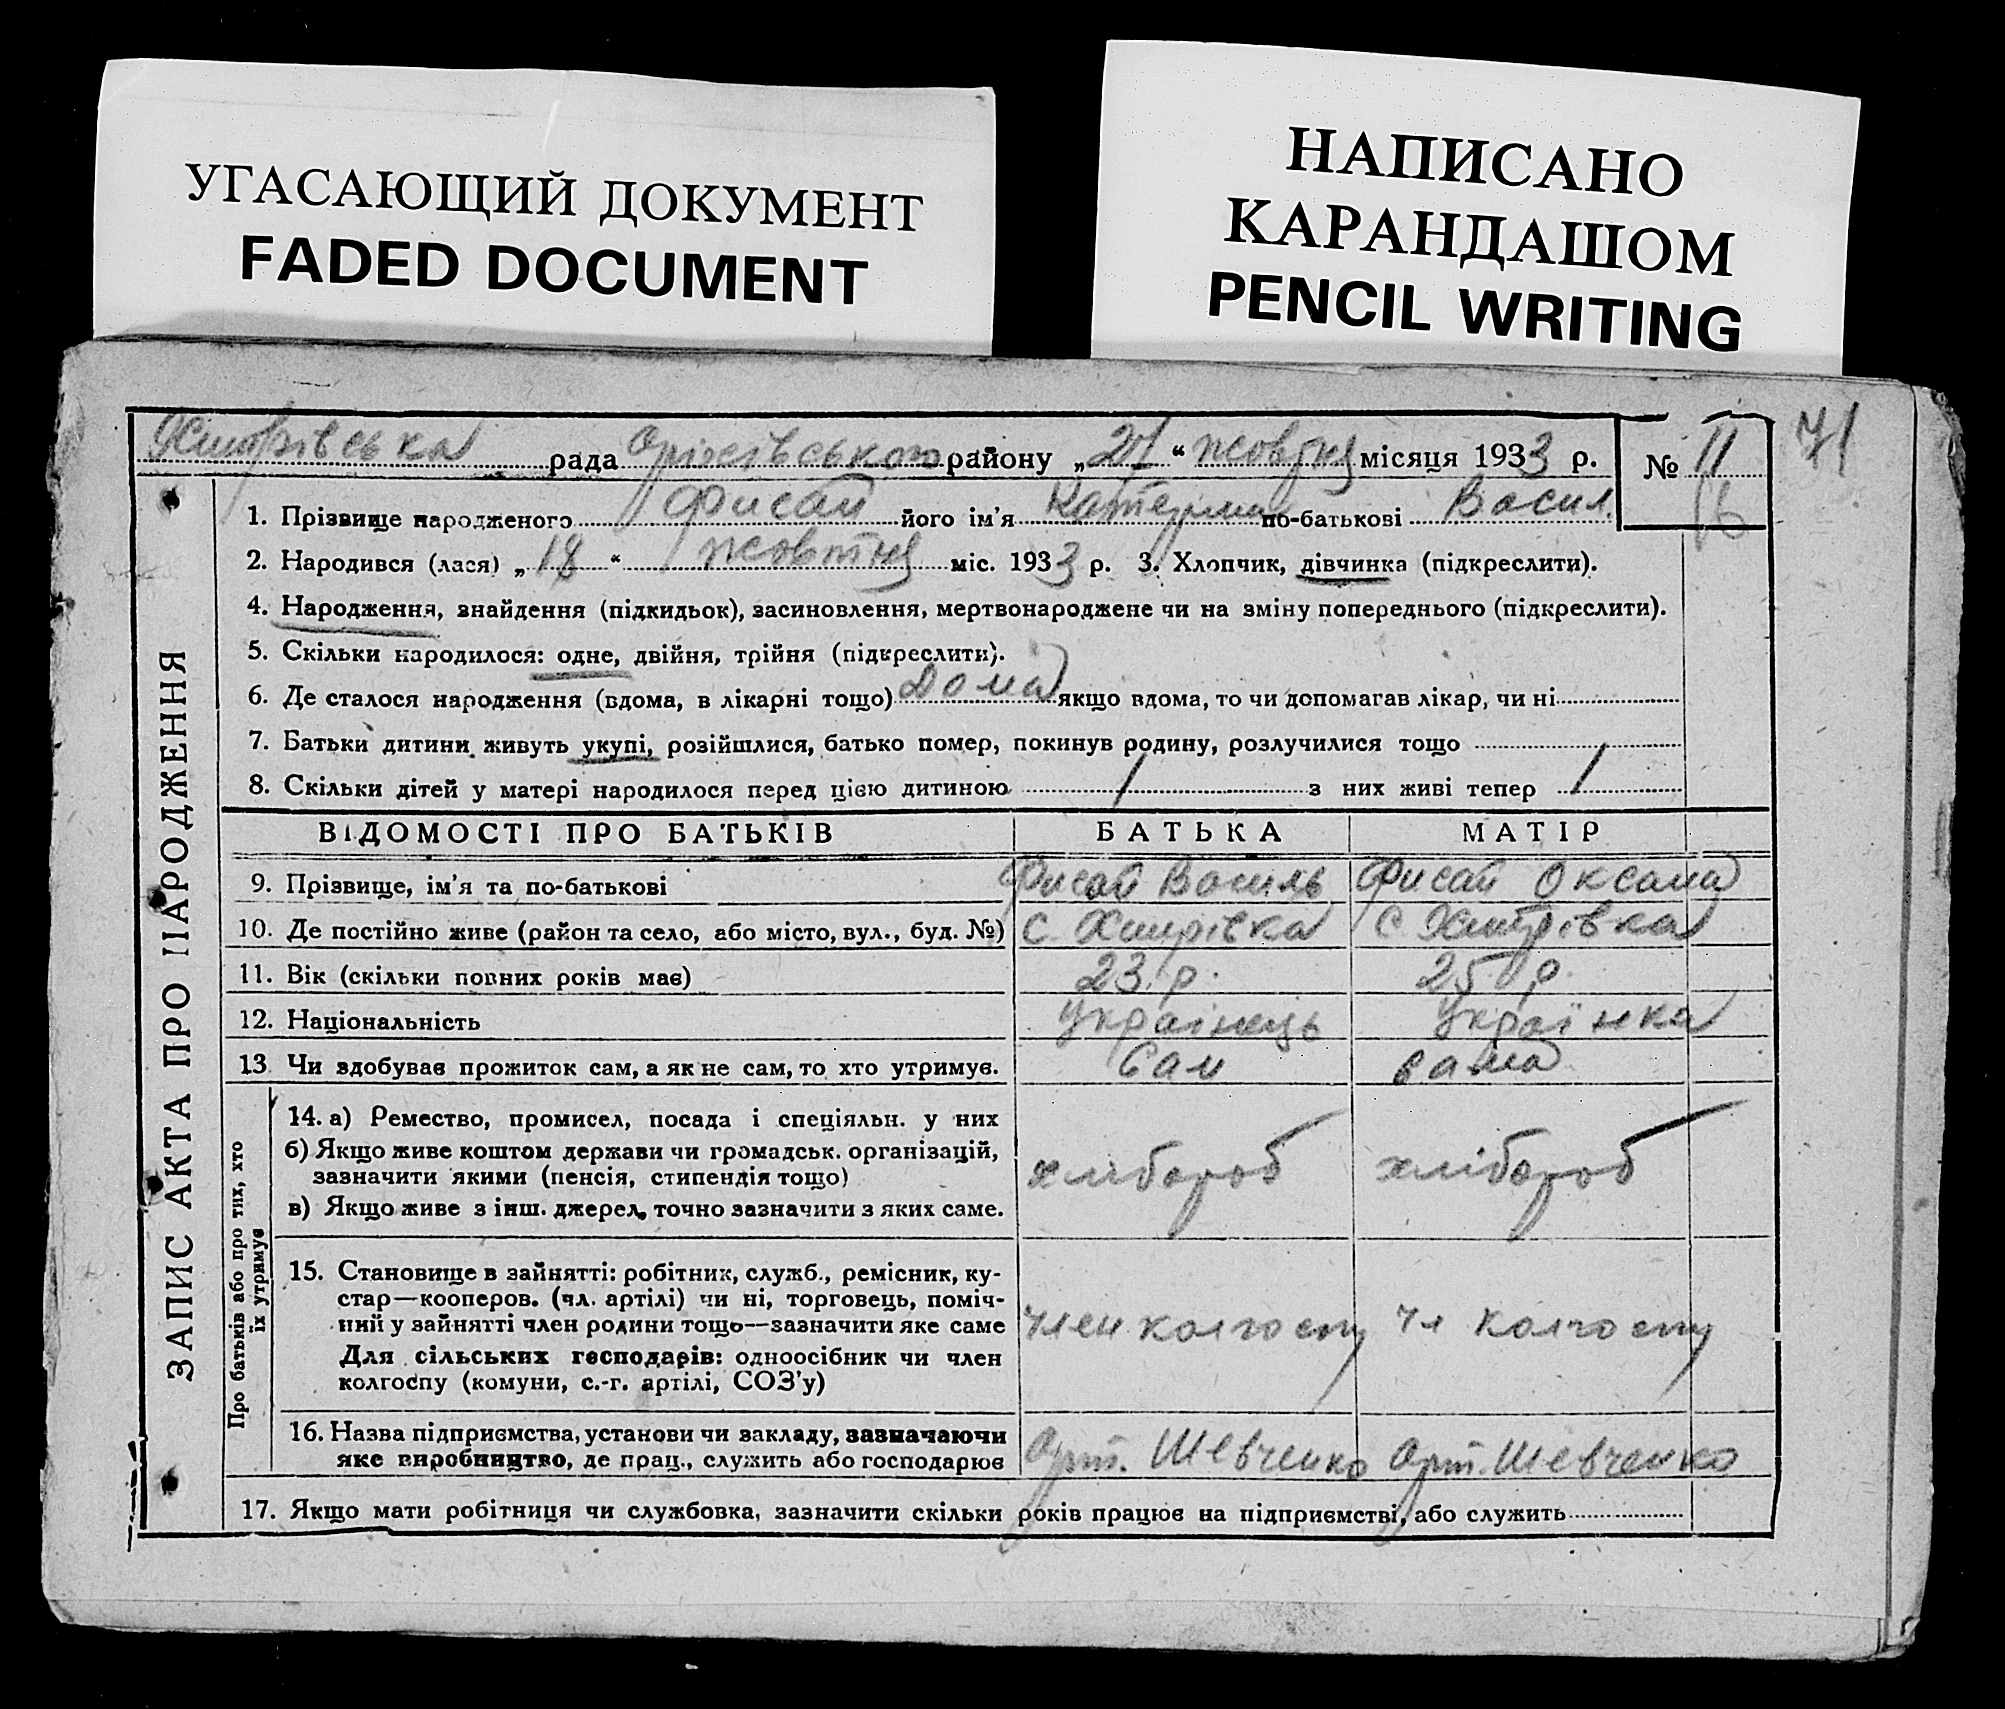 УГАСАЮЩИЙ ДОКУМЕНТ
FADED DOCUMENT
НАПИСАНО
КАРАНДАШОМ
PENCIL WRITING
71
рада району „21“ жовтня місяця 1933 р. № 11
16
ЗАПИС АКТА ПРО НАРОДЖЕННЯ
1. Прізвище народженого Фисай його ім'я Катерина по-батькові Васил.
2. Народився (лася) „18“ жовтня міс. 1933 р. 3. Хлопчик, дівчинка (підкреслити).
4. Народження, знайдення (підкидьок), засиновлення, мертвонароджене чи на зміну попереднього (підкреслити).
5. Скільки народилося: одне, двійня, трійня (підкреслити).
6. Де сталося народження (вдома, в лікарні тощо) Дома якщо вдома, то чи допомагав лікар, чи ні
7. Батьки дитини живуть укупі, розійшлися, батько помер, покинув родину, розлучилися тощо
8. Скільки дітей у матері народилося перед цією дитиною 1 з них живі тепер 1
ВІДОМОСТІ ПРО БАТЬКІВ БАТЬКА МАТІР
9. Прізвище, ім'я та по-батькові Фисай Василь Фисай Оксана
10. Де постійно живе (район та село, або місто, вул., буд. №) с. Хитрівка с Хитрівка
11. Вік (скільки повних років має) 23 р. 25 р
12. Національність Українець Українка
13 Чи здобуває прожиток сам, а як не сам, то хто утримує. Сам сама
Про батьків або про тих, хто
їх утримує
14. а) Ремество, промисел, посада і спеціяльн. у них
б) Якщо живе коштом держави чи громадськ. організацій,
зазначити якими (пенсія, стипендія тощо) хлібороб хлібороб
в) Якщо живе з інш. джерел, точно зазначити з яких саме.
15. Становище в зайнятті: робітник, служб., ремісник, ку-
стар—кооперов. (чл. артілі) чи ні, торговець, поміч-
ний у зайнятті член родини тощо—зазначити яке саме член колгоспу чл колгоспу
Для сільських господарів: одноосібник чи член
колгоспу (комуни, с.-г. артілі, СОЗ'у)
16. Назва підприємства, установи чи закладу, зазначаючи
яке виробництво, де прац., служить або господарює Арт. Шевченко Арт. Шевченко
17. Якщо мати робітниця чи службовка, зазначити скільки років працює на підприємстві, або служить